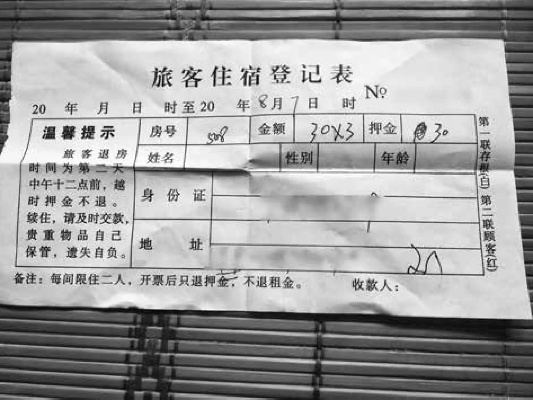 旅客住宿登记表
20 年 月 日 时至20 年8月7日 时 №
温馨提示
旅客退房
时间为第二天
中午十二点前，越
时押金不退。
续住，请及时交款，
贵重物品自己
保管，遗失自负。
房号 508 金额 30X3 押金 30
姓名 性别 年龄
身份证
地址
备注：每间限住二人，开票后只退押金，不退租金。 收款人：
第一联存根(白) 第二联顾客(红)